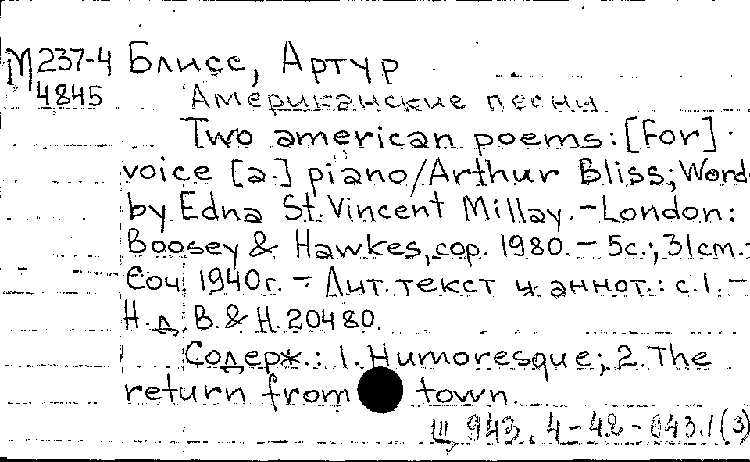 М 237-4 Блисс, Артур
4845 Американские песни
Two american poems: [For]
voice [a.] piano/Arthur Bliss; Word
by Edna St. Vincent Millay. - London:
Boosey & Hawkes, cop. 1980. - 5с.; 31см. -
Соч. 1940г. - Лит. текст и аннот.: с.1. -
Н.д. B. & H. 20480.
Содерж.: 1. Humoresque; 2. The
return from town.
943. 4-42-643.1(3)